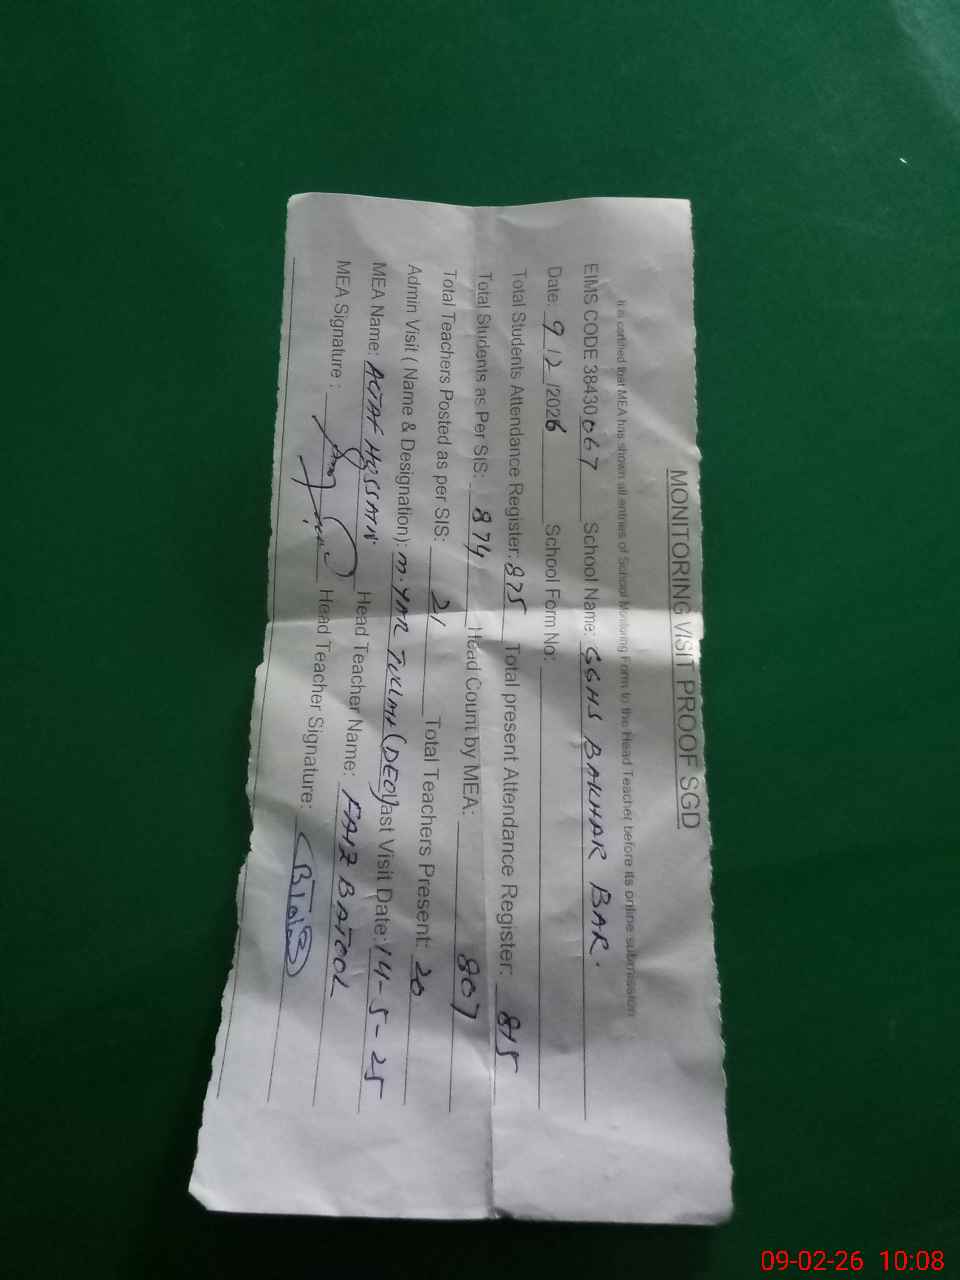 MONITORING VISIT PROOF SGD
It is certified that MEA has shown all entries of School Monitoring Form to the Head Teacher before its online submission
EIMS CODE 38430067 School Name: GGHS BAKHAR BAR.
Date: 9/2/2026 School Form No:
Total Students Attendance Register: 875 Total present Attendance Register: 815
Total Students as Per SIS: 874 Head Count by MEA: 807
Total Teachers Posted as per SIS: 21 Total Teachers Present: 20
Admin Visit ( Name & Designation): M. YAR (DEO) Last Visit Date: 14-5-25
MEA Name: ALTAF HUSSAIN Head Teacher Name: FAIZ BATOOL
MEA Signature : Head Teacher Signature:
09-02-26 10:08